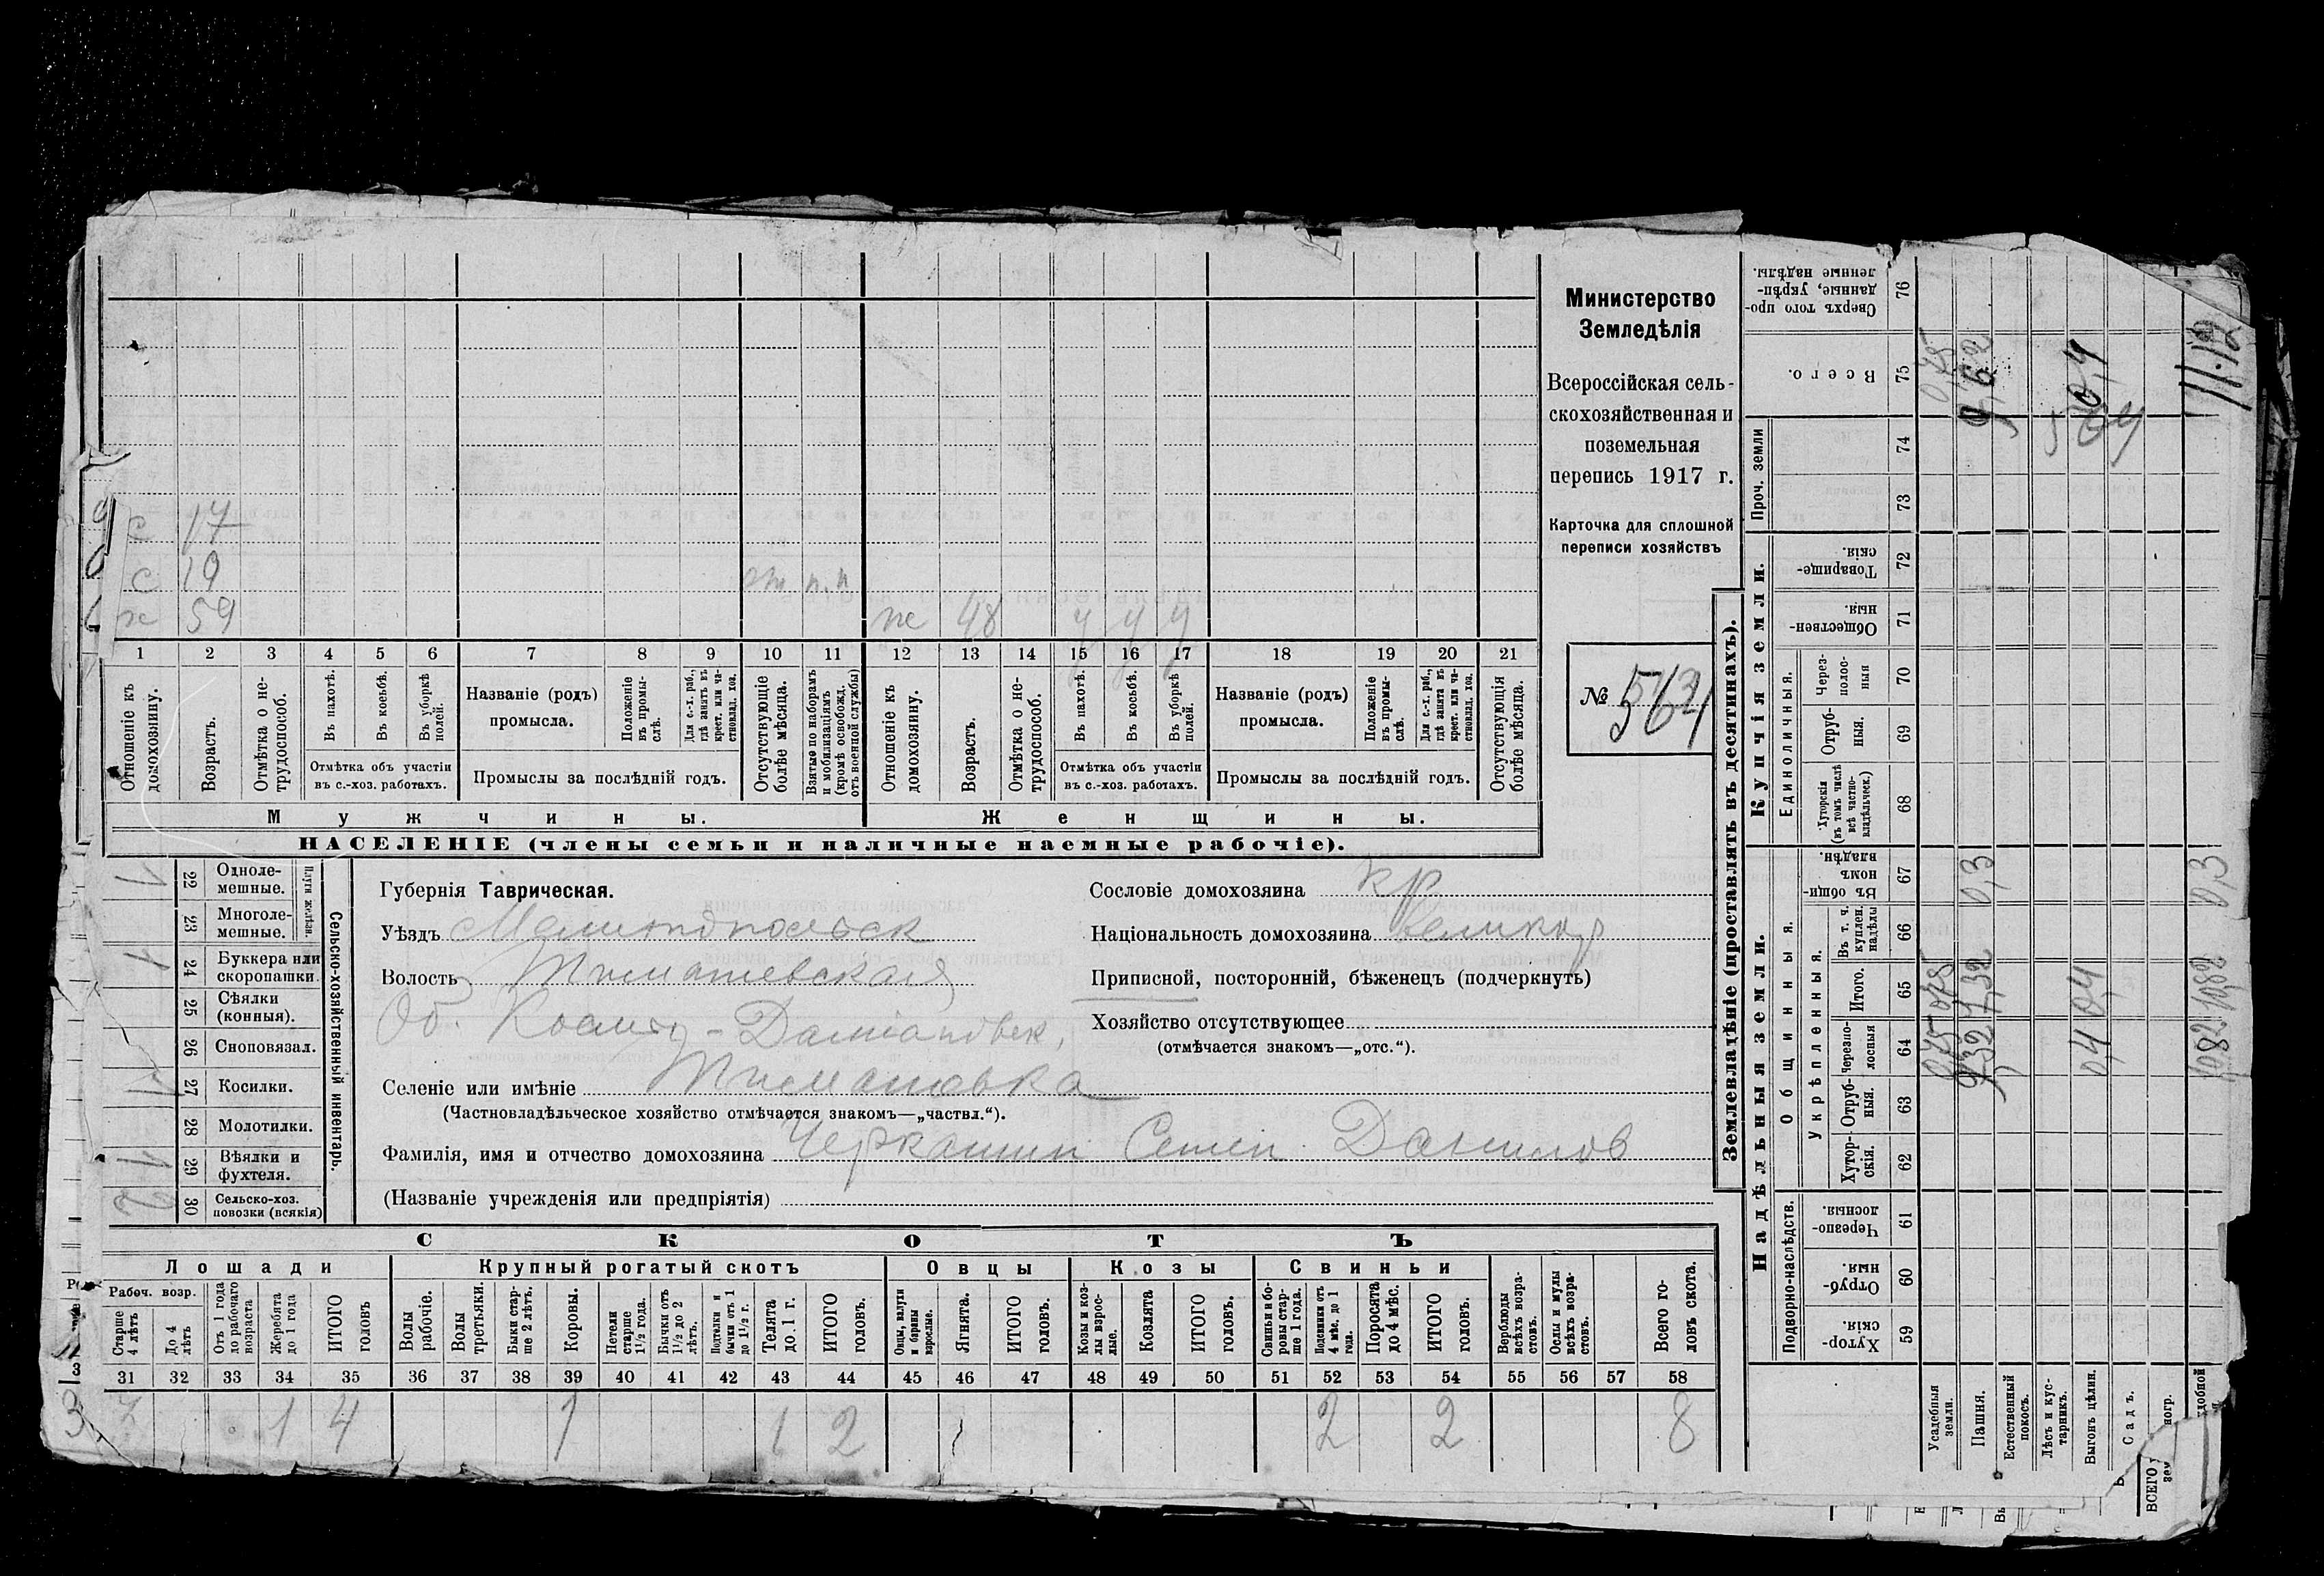 с 17
с 19 от п.п
х 59 ж 48 у у у
1 2 3 4 5 6 7 8 9 10 11 12 13 14 15 16 17 18 19 20 21
Отношеніе къ домохозяину.
Возрастъ.
Отмѣтка о нетрудоспособ.
Въ пахотѣ.
Въ косьбѣ.
Въ уборкѣ полей.
Отмѣтка объ участіи
въ с.-хоз. работахъ.
Названіе (родъ)
промысла.
Положеніе въ промыслѣ.
Для с.-х. раб., гдѣ занятъ въ крест. или частновлад. хоз.
Промыслы за послѣдній годъ.
Отсутствующіе болѣе мѣсяца.
Взятые по наборамъ и мобилизаціямъ (кромѣ освобожд. отъ военной службы)
Отношеніе къ домохозяину.
Возрастъ.
Отмѣтка о нетрудоспособ.
Въ пахотѣ.
Въ косьбѣ.
Въ уборкѣ полей.
Отмѣтка объ участіи
въ с.-хоз. работахъ.
Названіе (родъ)
промысла.
Положеніе въ промыслѣ.
Для с.-х. раб., гдѣ занята въ крест. или частновлад. хоз.
Промыслы за послѣдній годъ.
Отсутствующія болѣе мѣсяца.
Мужчины.
Женщины.
НАСЕЛЕНІЕ (члены семьи и наличные наемные рабочіе).
Министерство
Земледѣлія
Всероссійская сель-
скохозяйственная и
поземельная
перепись 1917 г.
Карточка для сплошной
переписи хозяйствъ
№ 564
Сельско-хозяйственный инвентарь.
Плуги желѣзн.
1 22 Одноле-
мешные.
23 Многоле-
мешные.
1 24 Буккера или
скоропашки.
25 Сѣялки
(конныя).
26 Сноповязал.
1 27 Косилки.
28 Молотилки.
1 29 Вѣялки и
фухтеля.
2 30 Сельско-хоз.
повозки (всякія)
Губернія Таврическая.
Уѣздъ Мелитопольск
Волость Тимашевская
Об. Космо-Даміановск.
Селеніе или имѣніе Тимашовка
(Частновладѣльческое хозяйство отмѣчается знакомъ—„частвл.“).
Фамилія, имя и отчество домохозяина Черкашин Семен Данилов
(Названіе учрежденія или предпріятія)
Сословіе домохозяина кр
Національность домохозяина великор
Приписной, посторонній, бѣженецъ (подчеркнуть)
Хозяйство отсутствующее
(отмѣчается знакомъ—„отс.“).
СКОТЪ
Лошади
Крупный рогатый скотъ
Овцы
Козы
Свиньи
Рабоч. возр.
Старше 4 лѣтъ
До 4 лѣтъ
Отъ 1 года до рабочаго возраста
Жеребята до 1 года
ИТОГО головъ
Волы рабочіе.
Волы третьяки.
Быки старше 2 лѣтъ.
Коровы.
Нетели старше 1½ года.
Бычки отъ 1½ до 2 лѣтъ.
Подтелки и бычки отъ 1 до 1½ г.
Телята до 1 г.
ИТОГО головъ.
Овцы, валухи и бараны взрослые.
Ягнята.
ИТОГО головъ.
Козы и козлы взрослые.
Козлята
ИТОГО головъ.
Свиньи и боровы старше 1 года.
Подсвинки отъ 4 мѣс. до 1 года.
Поросята до 4 мѣс.
ИТОГО головъ.
Верблюды всѣхъ возрастовъ.
Ослы и мулы всѣхъ возрастовъ.
Всего головъ скота.
31 32 33 34 35 36 37 38 39 40 41 42 43 44 45 46 47 48 49 50 51 52 53 54 55 56 57 58
3 1 4 1 1 2 2 2 8
Землевладѣніе (проставлять въ десятинахъ).
Надѣльныя земли.
Купчія земли.
Проч. земли
Подворно-наслѣдств.
Общинныя.
Укрѣпленныя.
Единоличныя.
Хуторскія 59
Отрубныя 60
Черезполосныя 61
Хуторскія. 62
Отрубныя. 63
Черезполосныя 64
Итого. 65
Въ т. ч. куплен. надѣлы 66
Въ общинномъ владѣн. 67
Хуторскія (въ томъ числѣ всѣ частновладѣльческ.) 68
Отрубныя. 69
Черезполосныя 70
Общественныя. 71
Товарищескія. 72
73
74
Всего. 75
Сверхъ того проданные, укрѣпленные надѣлы. 76
Усадебныя земли. 0,75 0,75 0,75
Пашня. 9,32 9,32 0,3 9,62
Естественный покосъ.
Лѣсъ и кустарникъ.
Выгонъ цѣлин. 0,4 0,4 0,4
Садъ.
10,82 10,82 0,3 11.12